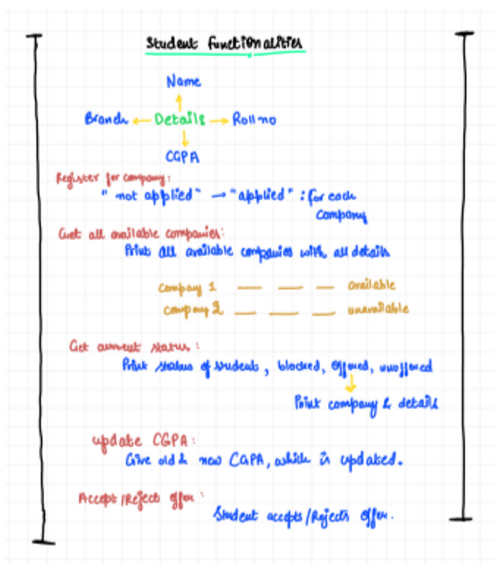 Student Functionalities
Name
Branch ← Details → Roll no
CGPA
Register for company:
"not applied" → "applied" : for each
company
Get all available companies:
Print all available companies with all details
Company 1 — — — available
Company 2 — — — unavailable
Get current status:
Print status of students, blocked, offered, unoffered
Print company & details
update CGPA:
Give old & new CGPA, which is updated.
Accept/Reject offer:
Student accepts/Rejects offer.